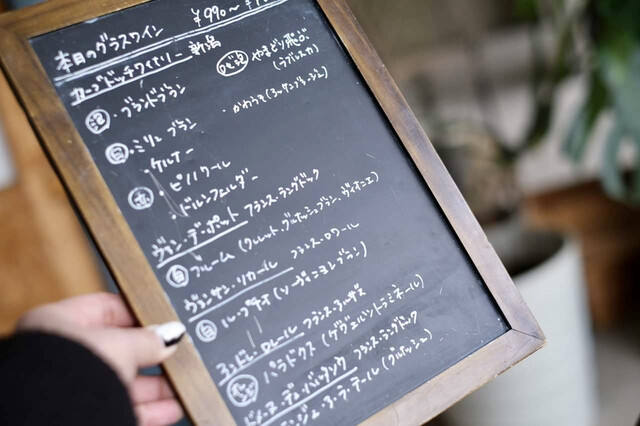 本日のグラスワイン ¥990〜
カーブドッチワイナリー 新潟
泡・ブランドブラン
ロゼ泡 やまどり飛ぶ
(ラブレスカ)
白・ミリュ ブラン
・かわうそ(ユーサンヴェジュ)
ケルナー
赤・ピノノワール
・ドルンフェルダー
ヴァン・デ・ポット フランス・ラングドック
白 ブルーム (クレレット、グルナッシュブラン、ヴィオニエ)
ヴァンサン・リカール フランス・ロワール
白 ル・プチオ (ソーヴィニヨンブラン)
ローレ フランス・アルザス
パラドクス (ゲヴュルツトラミネール)
ドメーヌ・デュ・フランス・ラングドック
ド・ラ・テール (グルナッシュ)